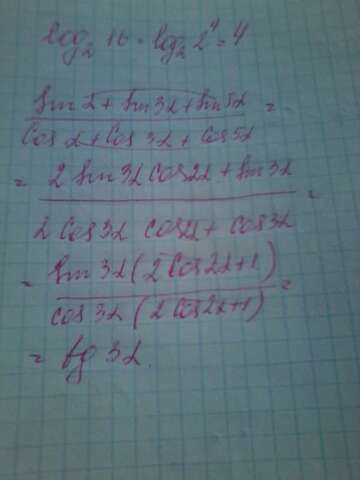 log₂ 16 = log₂ 2⁴ = 4
sin α + sin 3α + sin 5α
cos α + cos 3α + cos 5α =
= 2 sin 3α cos 2α + sin 3α
2 cos 3α cos 2α + cos 3α =
= sin 3α (2 cos 2α + 1)
cos 3α (2 cos 2α + 1) =
= tg 3α.